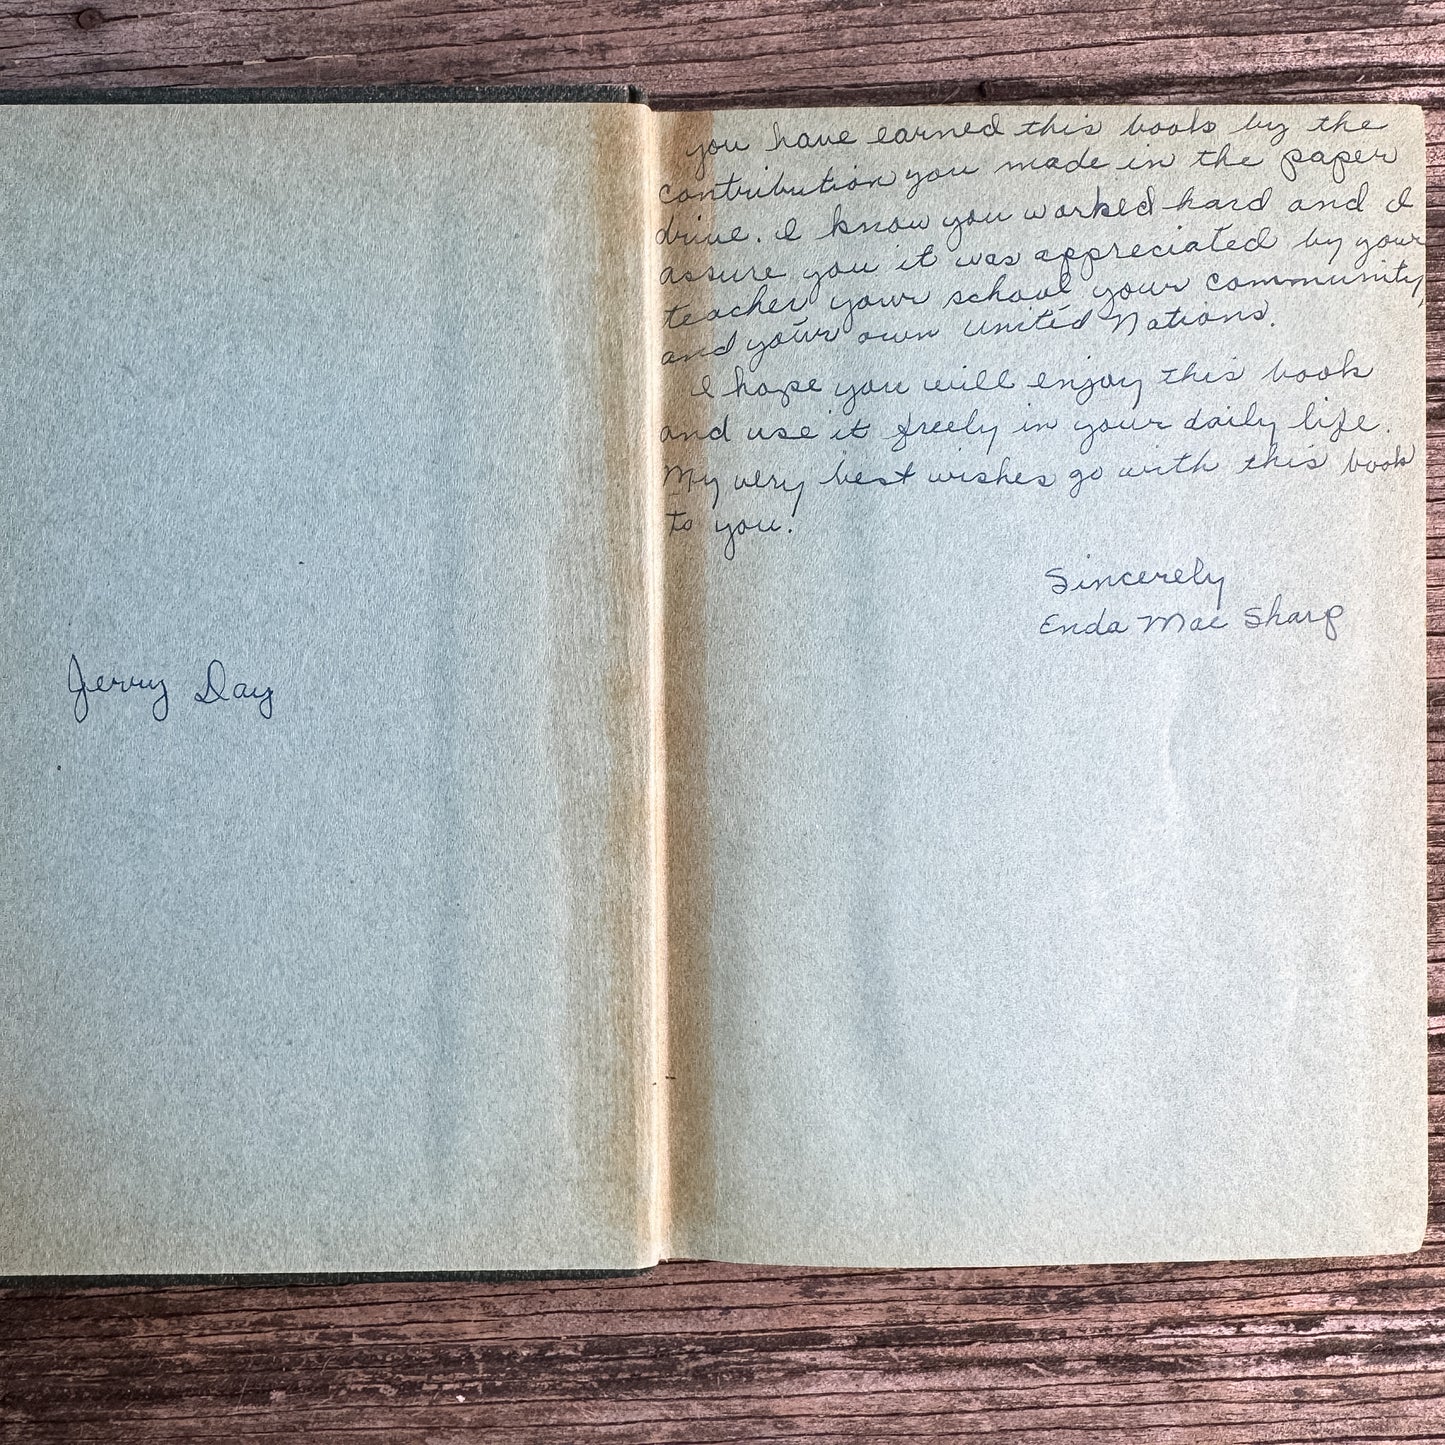 Jerry Day
you have earned this book by the
contribution you made in the paper
drive. I know you worked hard and I
assure you it was appreciated by your
teacher your school your community,
and your own United Nations.
I hope you will enjoy this book
and use it freely in your daily life.
My very best wishes go with this book
to you.
Sincerely
Enda Mae Sharp